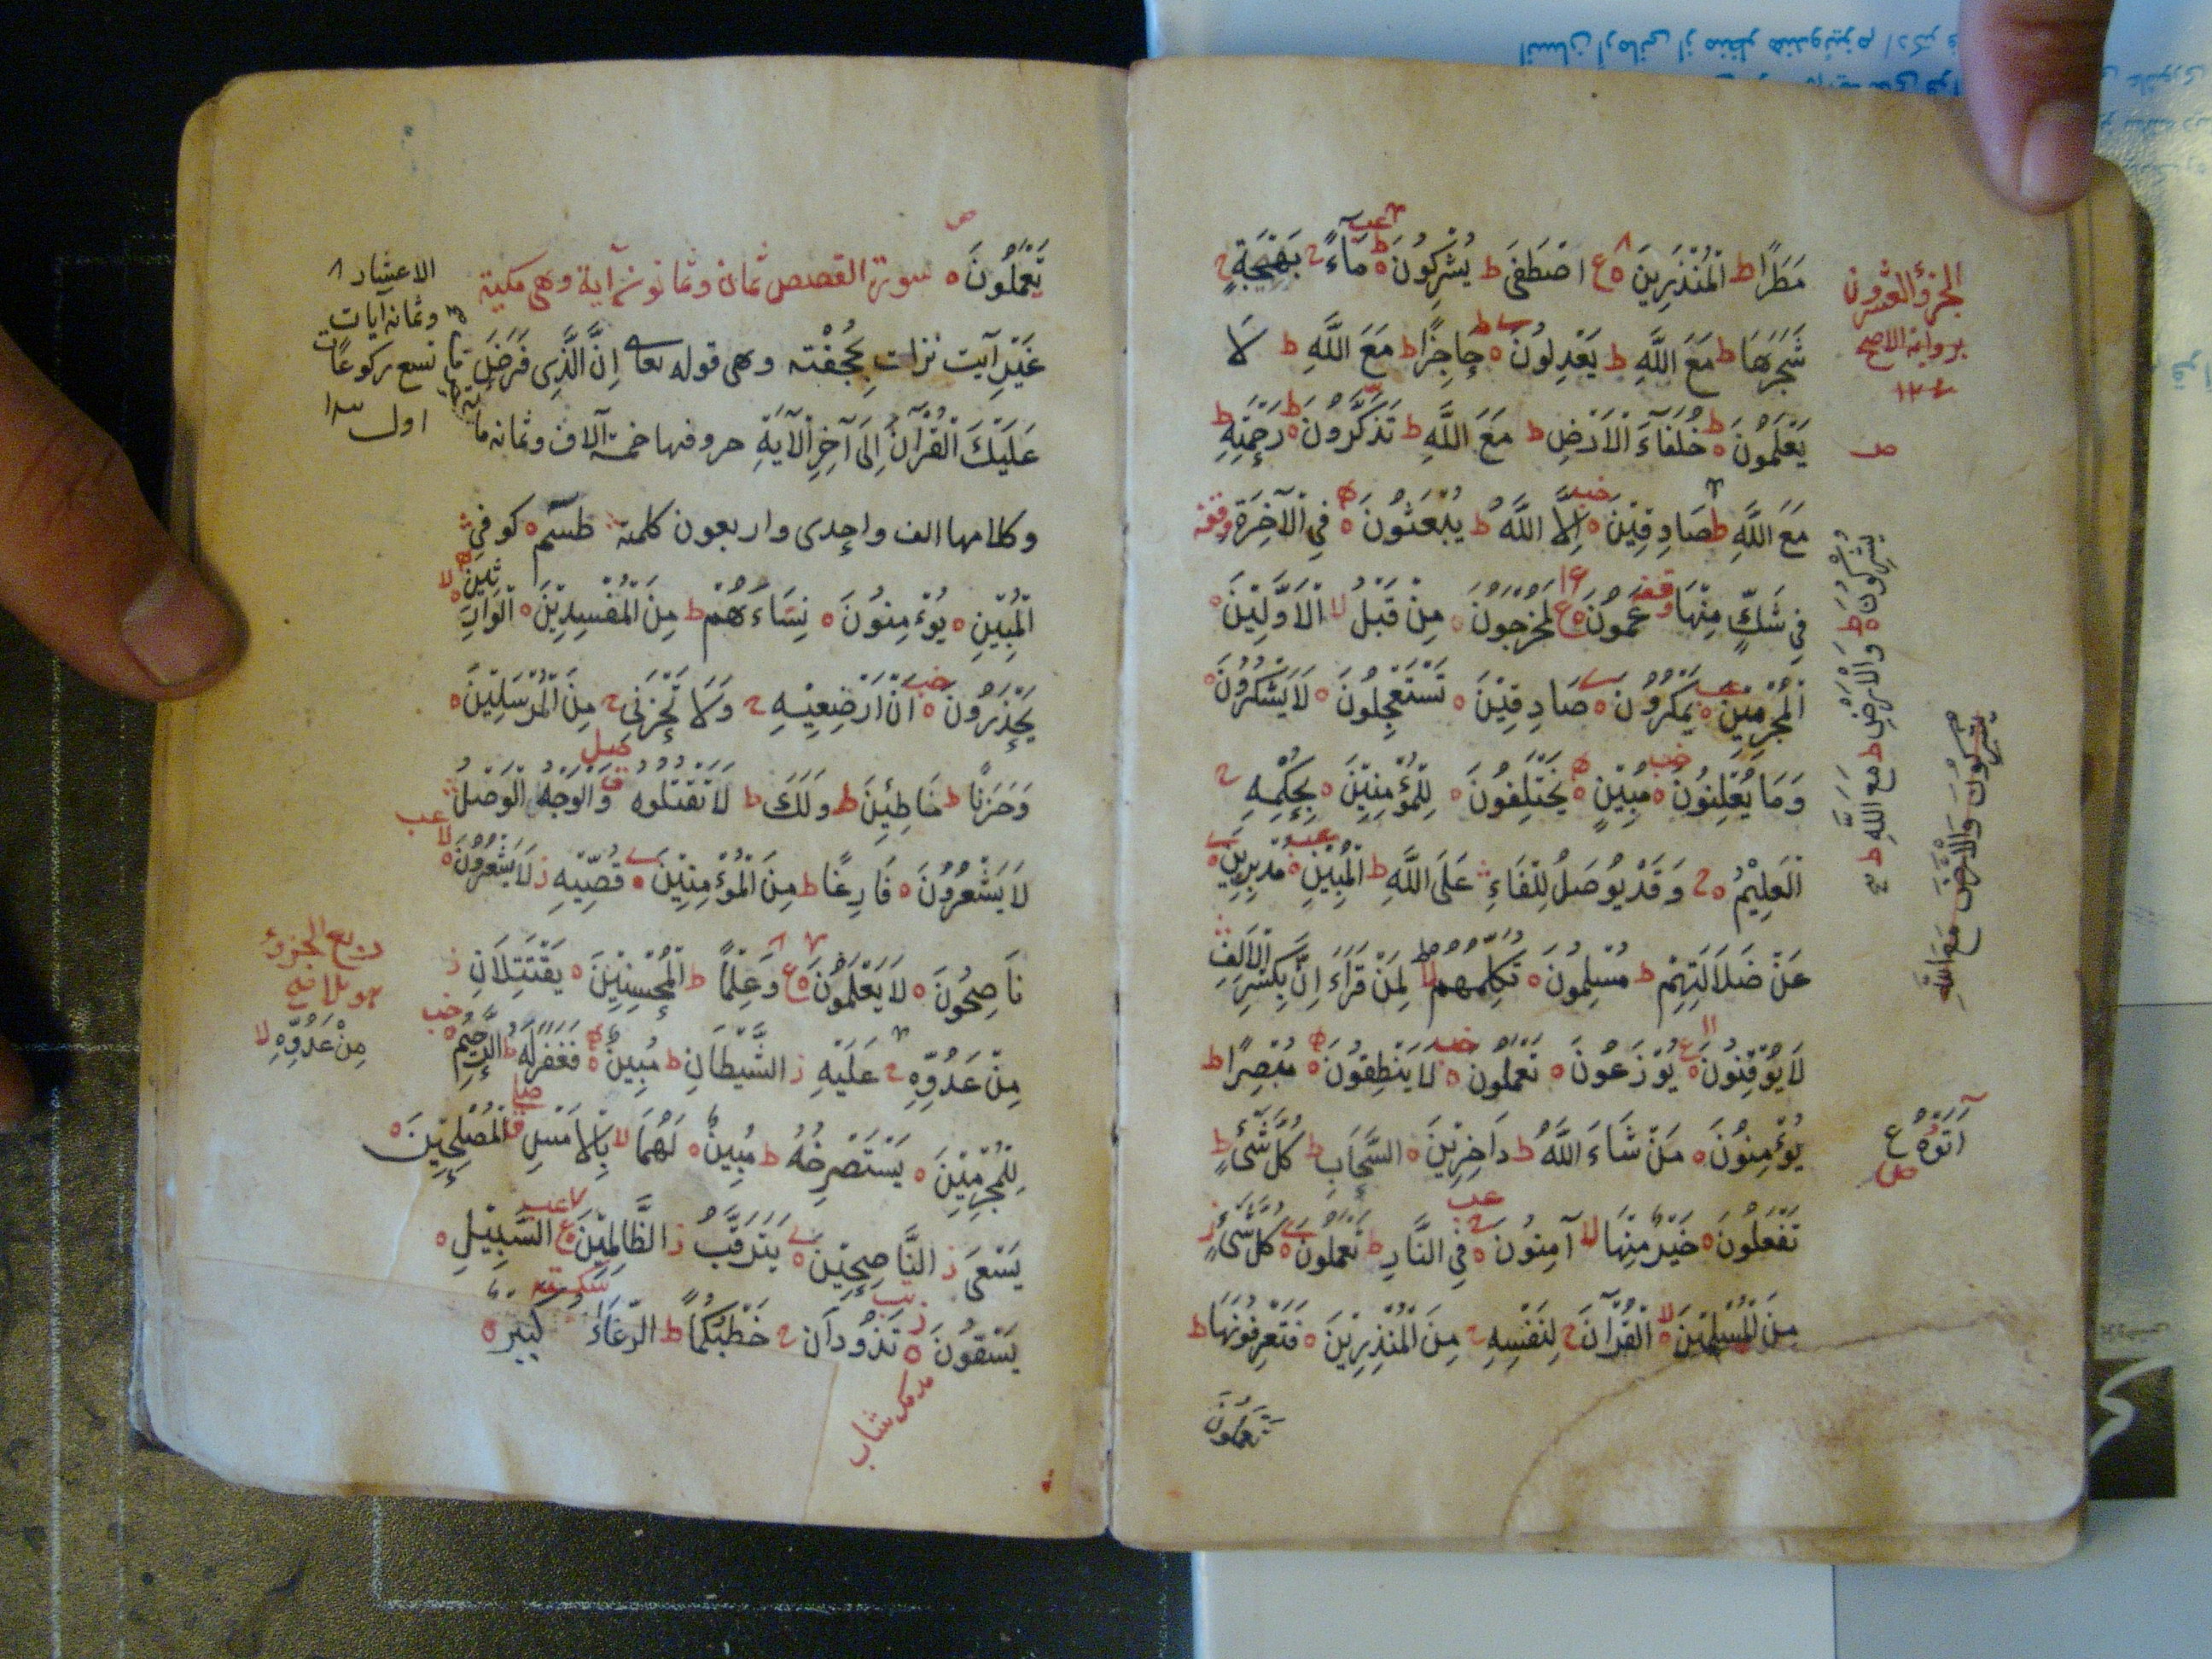 مَطَرًا ط الْمُنْذَرِينَ ه ع اصْطَفَى ط يُشْرِكُونَ ه ط مَآءً ح بَهْجَةٍ ح
شَجَرَهَا ط مَعَ اللَّهِ ط يَعْدِلُونَ ه ط حَاجِزًا ط مَعَ اللَّهِ ط لَا
يَعْلَمُونَ ه ط خُلَفَآءَ الْاَرْضِ ط مَعَ اللَّهِ ط تَذَكَّرُونَ ه ط رَحْمَتِهِ ط
مَعَ اللَّهِ ط صَادِقِيْنَ ه اِلَّا اللَّهُ ط يُبْعَثُونَ ه فِي الْآخِرَةِ وقفه
فِي شَكٍّ مِنْهَا وقفه عَمُونَ ه ع لَمُخْرَجُونَ ه مِنْ قَبْلُ لا الْاَوَّلِيْنَ ه
الْمُجْرِمِيْنَ ه يَمْكُرُونَ ه صَادِقِيْنَ ه تَسْتَعْجِلُونَ ه لَا يَشْكُرُونَ ه
وَمَا يُعْلِنُونَ ه مُبِيْنٍ ه يَخْتَلِفُونَ ه لِلْمُؤْمِنِيْنَ ه بِحُكْمِهِ ح
الْعَلِيْمُ ه ح وَقَدْ يُوصَلُ لِلْفَاءِ عَلَى اللَّهِ ط الْمُبِيْنِ ه مُدْبِرِيْنَ ه
عَنْ ضَلَالَتِهِمْ ط مُسْلِمُونَ ه تُكَلِّمُهُمْ لا لِمَنْ قَرَاَ اِنَّ بِكَسْرِ الْاَلِفِ
لَا يُوْقِنُونَ ه ع يُوْزَعُونَ ه تَعْمَلُونَ ه لَا يَنْطِقُونَ ه مُبْصِرًا ط
يُؤْمِنُونَ ه مَنْ شَاءَ اللَّهُ ط دَاخِرِيْنَ ه السَّحَابِ ط كُلَّ شَيْءٍ ط
تَفْعَلُونَ ه خَيْرٌ مِنْهَا ج آمِنُونَ ه فِي النَّارِ ط تَعْمَلُونَ ه كُلُّ شَيْءٍ ز
مِنَ الْمُسْلِمِيْنَ ه لا الْقُرْآنَ ج لِنَفْسِهِ ج مِنَ الْمُنْذِرِيْنَ ه فَتَعْرِفُونَهَا ط
تَعْمَلُونَ
الجزؤ العشرون
برواية الاصح
ص
يُشْرِكُونَ ه ط وَالْاَرْضِ ط مَعَ اللَّهِ ط
يُشْرِكُونَ وَالْاَرْضِ مَعَ اللَّهِ
اَتَوْهُ
ص
تَعْمَلُونَ ه سورة القصص ثمان وثمانون آية وهي مكية
غَيْرَ آيت نزلت بِجُحْفَة وهي قوله تعالى اِنَّ الَّذِي فَرَضَ
عَلَيْكَ الْقُرْآنَ اِلَى آخِرِ الْآيَةِ حروفها خمسة آلاف وثمانمائة
وكلامها الف واحدى واربعون كلمة طسم ه كوفي
الْمُبِيْنِ ه يُؤْمِنُونَ ه نِسَاءَهُمْ ط مِنَ الْمُفْسِدِيْنَ ه الْوَارِثِيْنَ ه لا
يَحْذَرُونَ ه اَنْ اَرْضِعِيْهِ ج وَلَا تَحْزَنِي ج مِنَ الْمُرْسَلِيْنَ ه
وَحَزَنًا ط خَاطِئِيْنَ ط وَلَكَ ط لَا تَقْتُلُوهُ وَالْوَجْهُ الْوَصْلُ
لَا يَشْعُرُونَ ه فَارِغًا ط مِنَ الْمُؤْمِنِيْنَ ه قُصِّيْهِ ز لَا يَشْعُرُونَ ه لا
نَاصِحُونَ ه لَا يَعْلَمُونَ ه ع وَعِلْمًا ط الْمُحْسِنِيْنَ ه يَقْتَتِلَانِ ز
مِنْ عَدُوِّهِ ج عَلَيْهِ ز الشَّيْطَانِ ط مُبِيْنٌ ه فَغَفَرَ لَهُ ط الرَّحِيْمُ ه
لِلْمُجْرِمِيْنَ ه يَسْتَصْرِخُهُ ط مُبِيْنٌ ه لَهُمَا لا بِالْاَمْسِ الْمُصْلِحِيْنَ ه
يَسْعَى ز النَّاصِحِيْنَ ه يَتَرَقَّبُ ز الظَّالِمِيْنَ ه ع السَّبِيْلِ ه
يَسْقُونَ ه تَذُودَانِ ج خَطْبُكُمَا ط الرِّعَاءُ كَبِيْرٌ ه
الاعشار ٨
وثمانه آيات
تسع ركوعات
اول
ربع الجزؤ
مِنْ عَدُوِّهِ لا